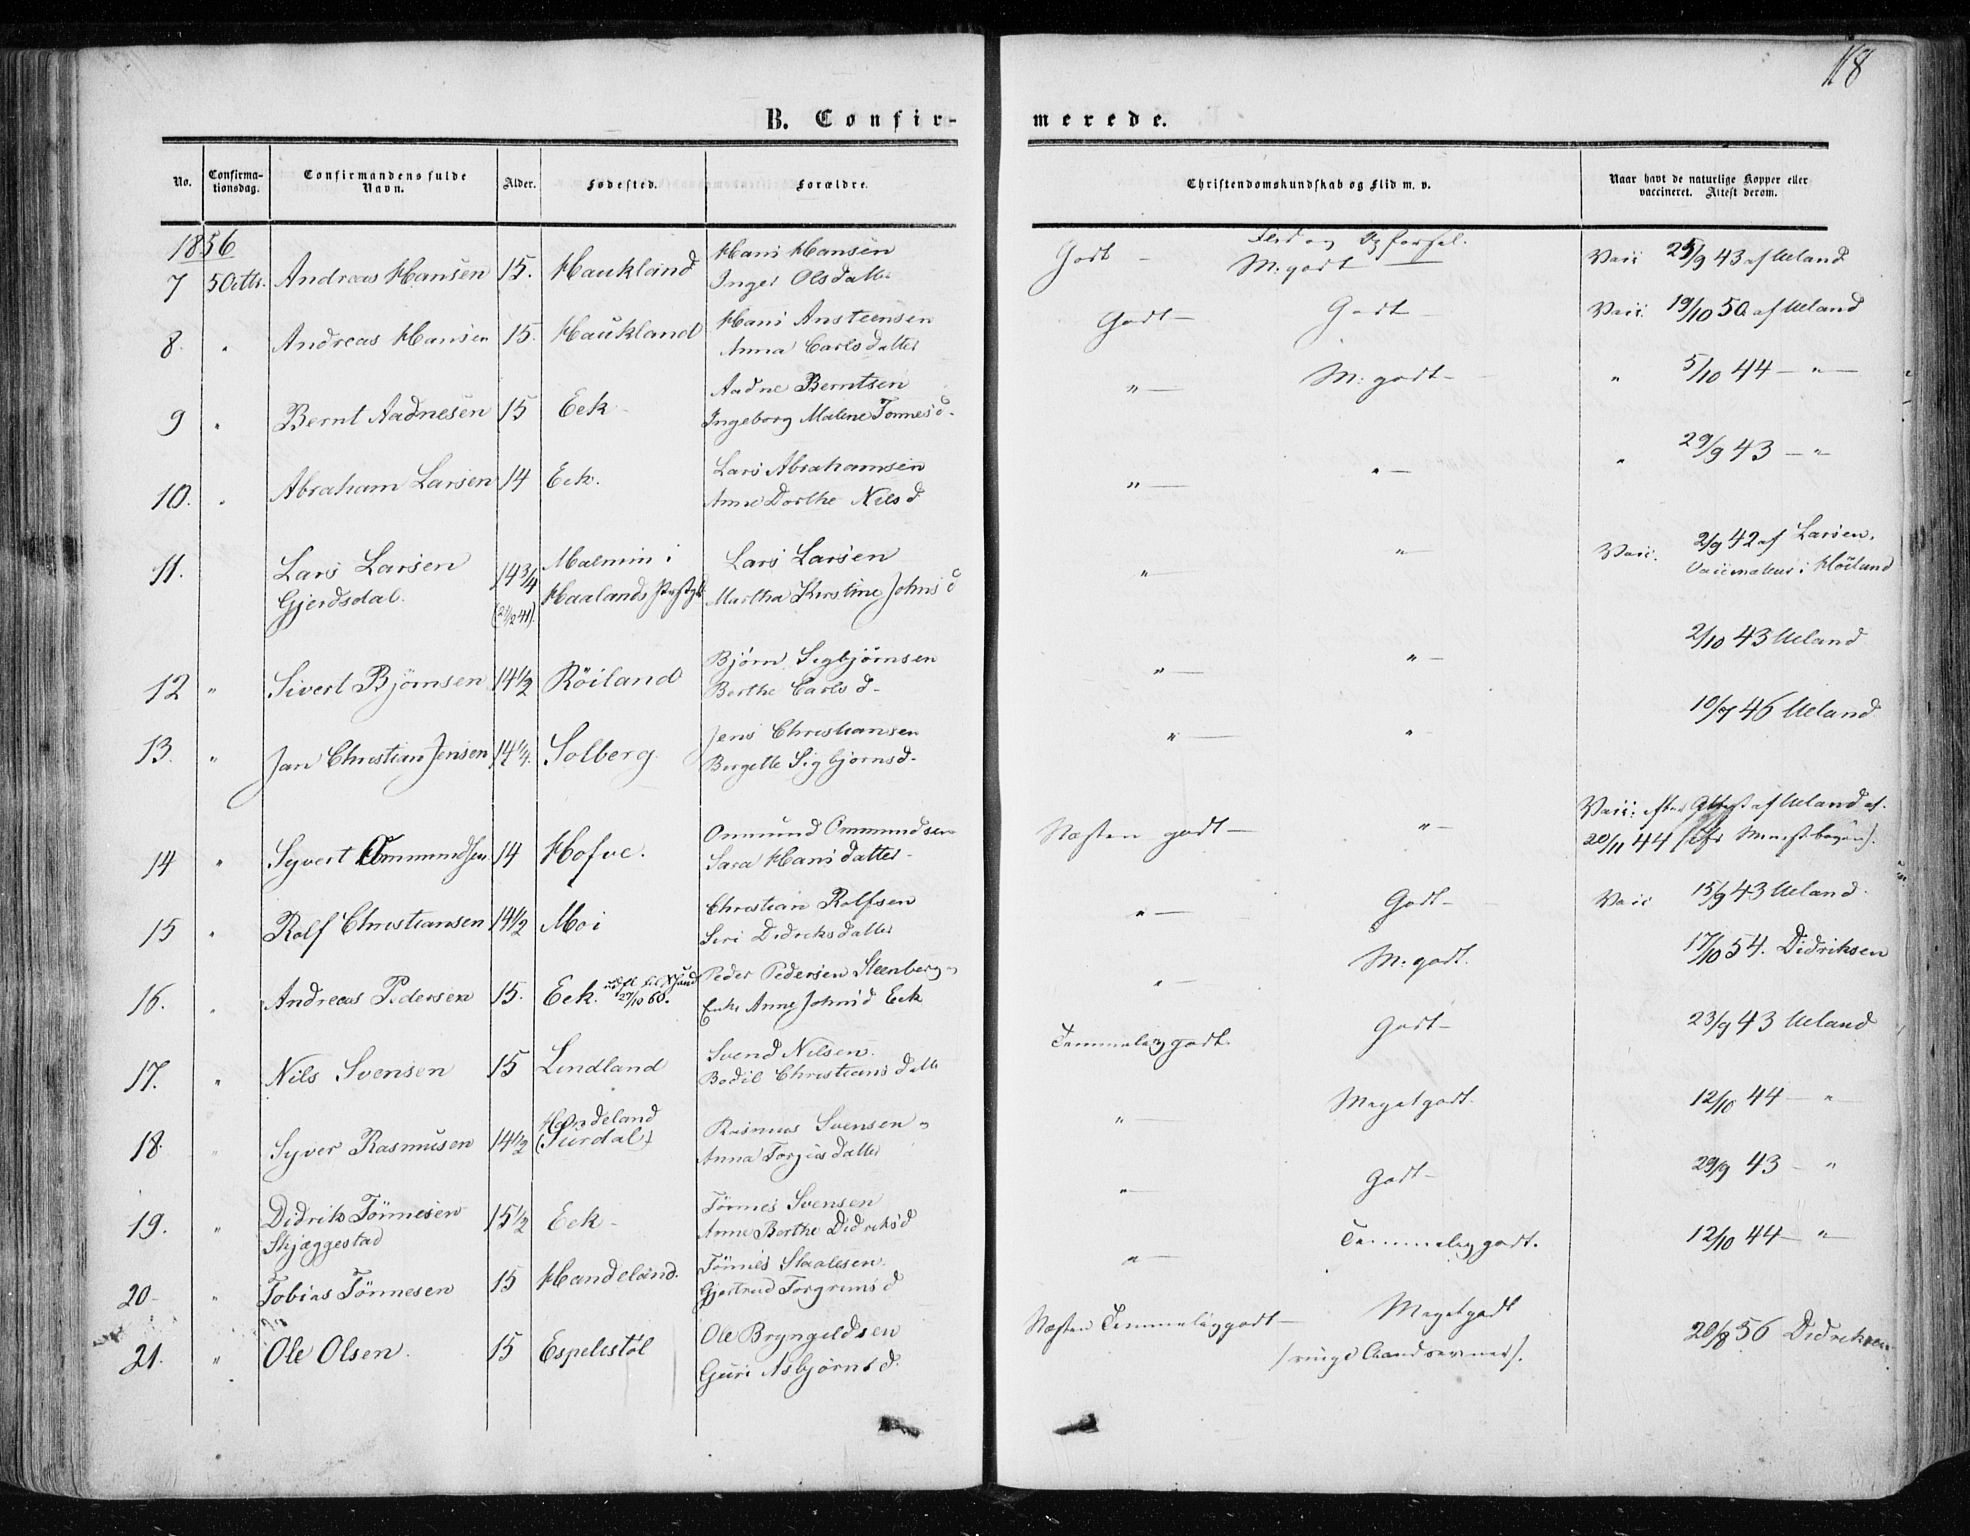 118
B. Confir-
merede.
No.
Confirma-
tionsdag.
Confirmandens fulde
Navn.
Alder.
Fødested.
Forældre.
Christendomskundskab og Flid m. v.
Naar havt de naturlige Kopper eller
vaccineret. Attest derom.
1856
Flid og Opførsel.
7 5 Octbr. Andreas Hansen 15. Haukland Hans Hansen Godt - M: godt Vacc 25/9 43 af Ueland
Inger Olsdatter
8. " Andreas Hansen 15. Haukland Hans Ansteensen Godt - Godt Vacc. 19/10 50 af Ueland
Anna Carlsdatter
9 " Bernt Aadnesen 15 Eek - Aadne Berntsen " - M: godt - " 5/10 44 - " -
Ingeborg Malene Tønnesd.
10. " Abraham Larsen 14 Eek. Lars Abrahamsen " - " - " 29/9 43 - "
Anne Dorthe Nilsd
11. Lars Larsen 14 3/4 Malmin i Lars Larsen " - " Vacc. 2/9 42 af Larsen,
Gjerdsdal. Haalands Martha Kirstine Johnsd Vaccinateur i Höiland
12 " Sivert Bjørnsen 14 1/2 Röiland Bjørn Sigbjørnsen " - " - 2/10 43 Ueland
Berthe Carlsd -
13. " Jan Christian Jensen 14 1/4. Solberg Jens Christiansen " - " 10/7 46 Ueland
Bergette Sigbjørnsd -
14 " Syvert Ommundsen 14 Hofve. Ommund Ommundsen Næsten godt - " - Vacc: efter Attest af Ueland af
Sara Hansdatter - 20/11 44
15 " Rolf Christiansen 14 1/2 Moi Christian Rolfsen " - Godt - Vacc 15/9 43 Ueland.
Siri Didriksdatter
16. " Andreas Pedersen 15. Eek. 27/10 60. Peder Pedersen Steenberg " - M: godt. 17/10 54. Didriksen
Enke Anne Johnsd Eek
17. " Nils Svensen 15 Lindland Svend Nilsen. Temmelig godt. Godt - 23/9 43 Ueland
Bodil Christiansdatt
18. " Syver Rasmusen 14 1/2 Handeland Rasmus Svensen " - Meget godt. 12/10 44 - "
(Siirdal) Anna Torjusdatter
19. " Didrik Tönnesen 15 1/2 Eek - Tönnes Svensen " - Godt - 29/9 43 - "
Skjæggestad Anne Berthe Didriksd
20 - " Tobias Tönnesen 15 Handeland. Tönnes Staalesen. " - Temmelig godt. 12/10 44 - " -
Gjertrud Torgrimsd
21. " Ole Olsen. 15 Espelistöl Ole Bryngeldsen Næsten Temmelig godt - Meget godt 20/8 56 Didriksen
Guri Asbjørnsd. (ringe Aandsevner).